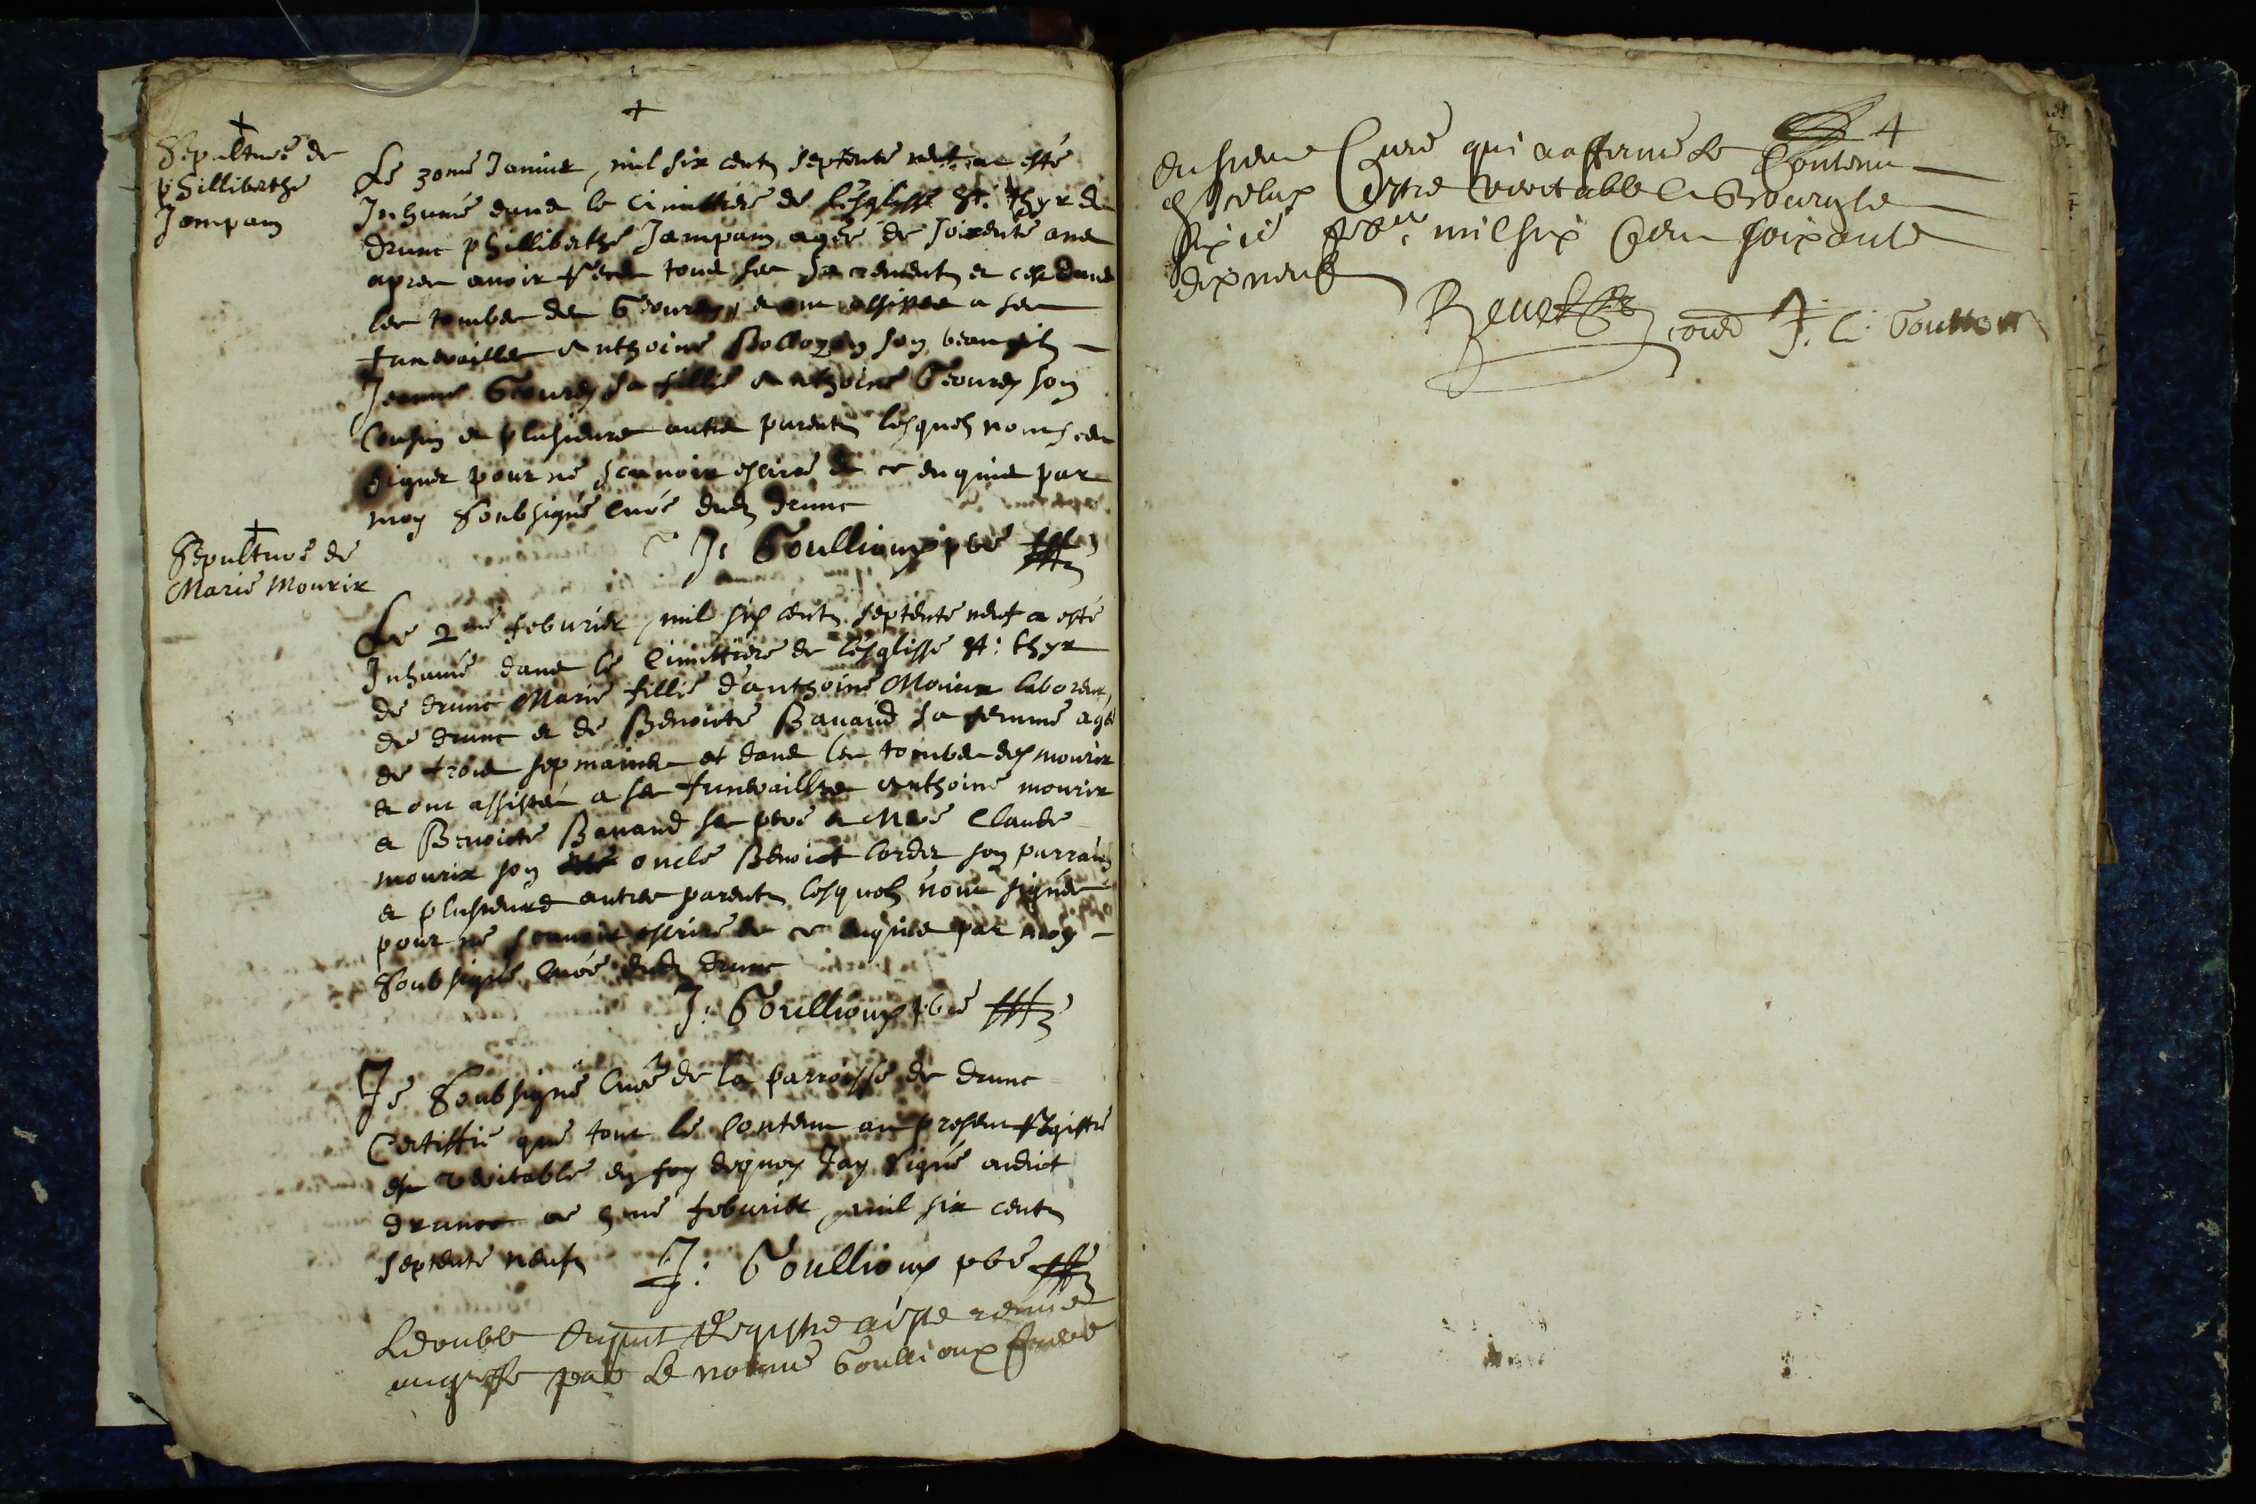 Sepulture de
philliberthe
Jampam
Le 30me Januier, mil six cents septente neuf a esté
Inhumé dans le cimittiere de l'esglisse St. thyr de
drunc philliberthe Jampam agée de soixente ans
apres auoir tous ses sacrements et cest dans
les tombes des Gourdy, et ont assistes a ses
funerailles Anthoine son beau fils
Jeanne Gourdy sa fillie Anthoine Gourdy son
Cousin et plusieurs autre parents lesquels nont sceu
signer pour ne scauoir escrire de ce enquis par
moy Soubsigné Curé dudt drunc
J: Goullioux pbre
Sepulture de
Marie Mourix
Le 2me feburier, mil six cents septente neuf a esté
Inhumé dans le Cimittiere de l'esglisse St: thyr
de drunc Marie fillie d'anthoine Mourix laboreur,
de drunc et de Benoicte Bauard sa femme agé
de trois sepmaines et dans les tombes des mourix
et ont assistés a ses funerailles Anthoine mourix
et Benoicte Bauard ses pere et Mere Claude
mourix son oncle Benoict Cordier son parrain
et plusieurs autres parents lesquels n'ont signés
pour ne scauoir escrire de ce enquis par moy
Soubsigné Curé dudt drunc
J: Goullioux pbre
Je Soubsigné Curé de la parroisse de drunc
Certiffie que tout le Contenu au present Registre
est veritable en foy dequoy Jay signé audict
drunc ce 5me feburier, mil six cents
septente neuf
J: Goullioux pbre
Ledouble Dupnt Registre a este remis
augreffe par le nomme Goullioux
4
dusieur Curé qui a affirmé Le Contenu
en celuy Estre veritable Ce
six ie feb.er mil six Cens soixante
dix neuf
J. C. Goullioux